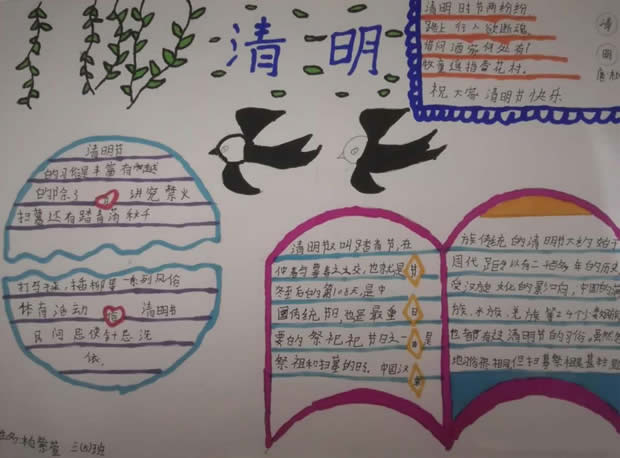 清明
清明时节雨纷纷
路上行人欲断魂
借问酒家何处有!
牧童遥指杏花村。
祝大家清明节快乐
清
明
清明节
的习俗是丰富有趣
的除了 讲究禁火
扫墓还有踏青荡秋千
打马球、插柳等一系列风俗
体育活动 清明节
民间忌使针忌洗
衣.
清明节又叫踏青节,在
仲春与暮春之交,也就是
冬至后的第108天,是中
国传统节日,也是最重
要的祭祀祀节日之一 是
祭祖和扫墓的日子。中国汉
节
日
族传统的清明节大约始于
周代 距今以有二千五百多年的历史
受汉族文化的影响,中国的满
族、 族 等24个少数民族
也都有过清明节的习俗。虽然
地习俗 相同但扫墓祭祖是基本
三(5)班